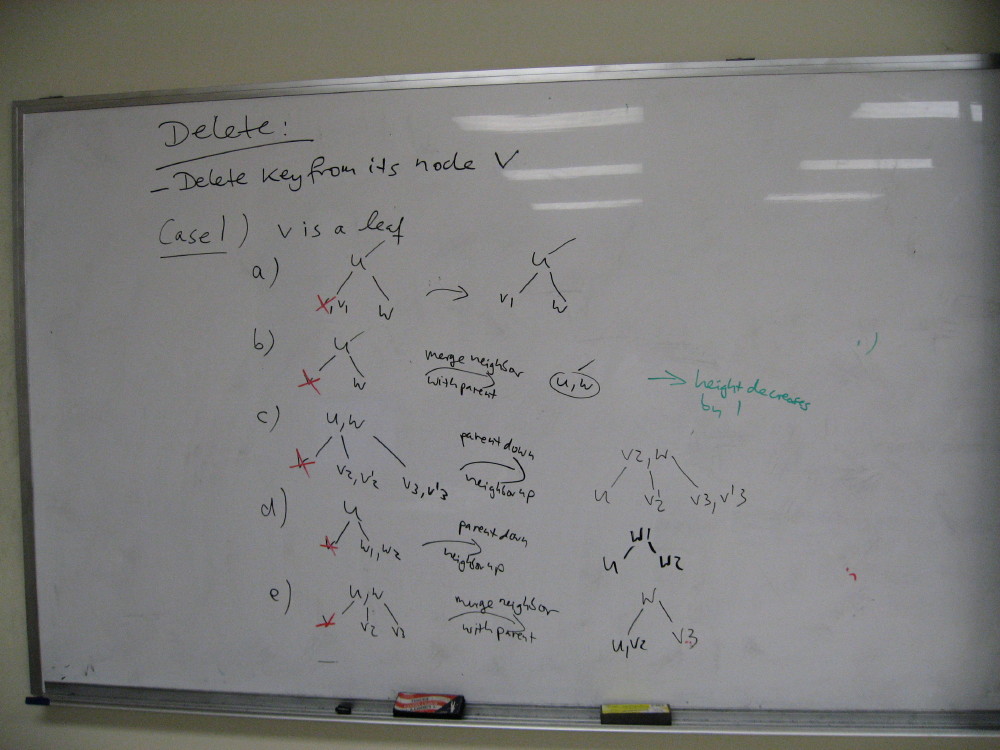 Delete:
- Delete key from its node V
Case 1) V is a leaf
a)
u
V, V1
W
u
V1
W
b)
u
V
W
merge neighbor
with parent
u,W
→ height decreases
by 1
c)
u,W
V
V2,V'2
V3,V'3
parent down
neighbor up
V2,W
u
V'2
V3,V'3
d)
u
V
W1,W2
parent down
neighbor up
W1
u
W2
e)
u,W
V
V2
V3
merge neighbor
with parent
W
u,V2
V3